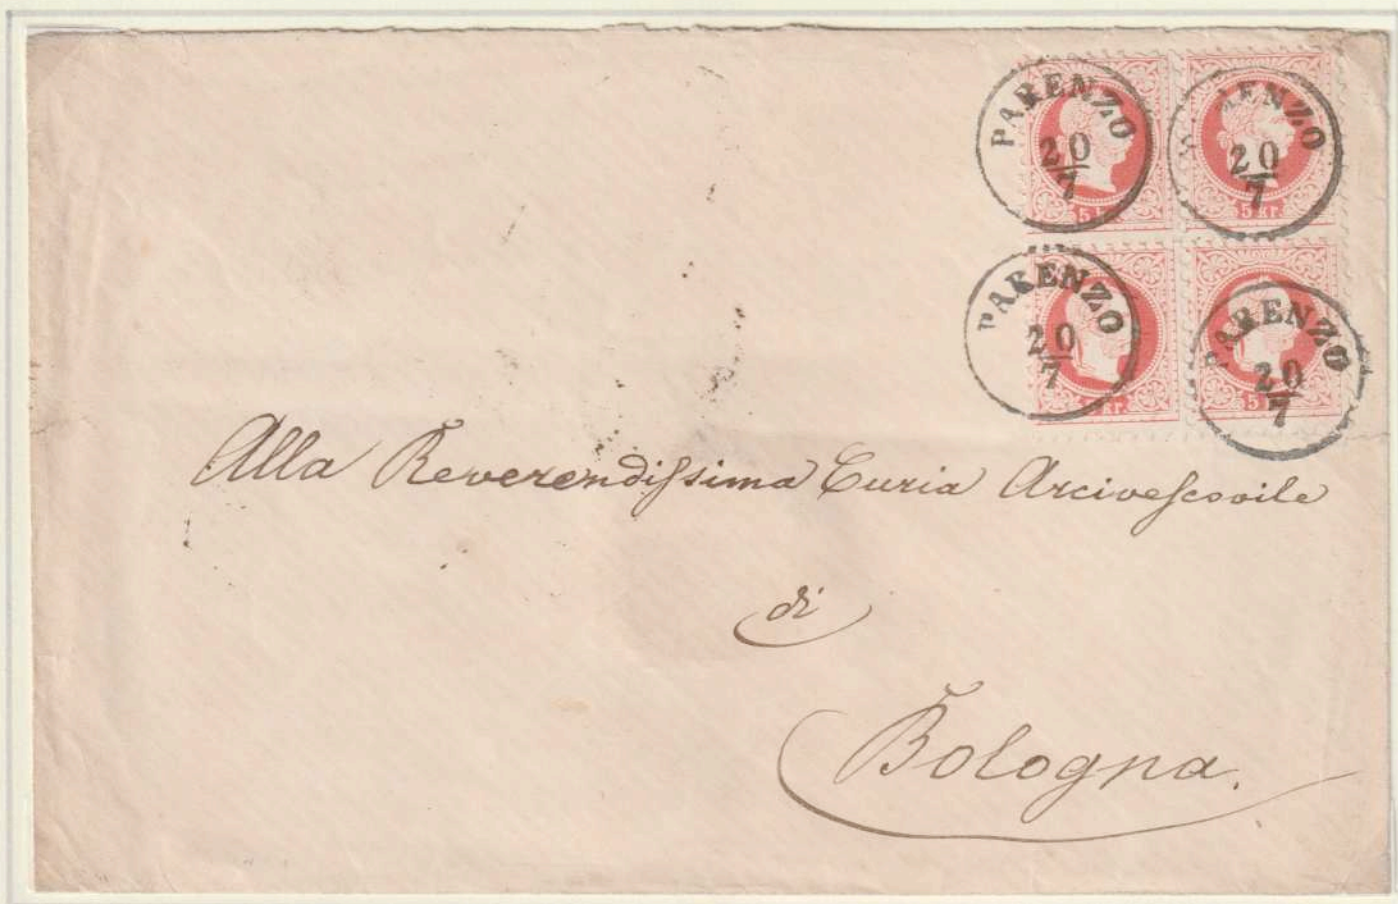 PARENZO
20
7
PARENZO
20
7
5 kr.
PARENZO
20
7
kr.
PARENZO
20
7
5
Alla Reverendissima Curia Arcivescovile
di
Bologna.